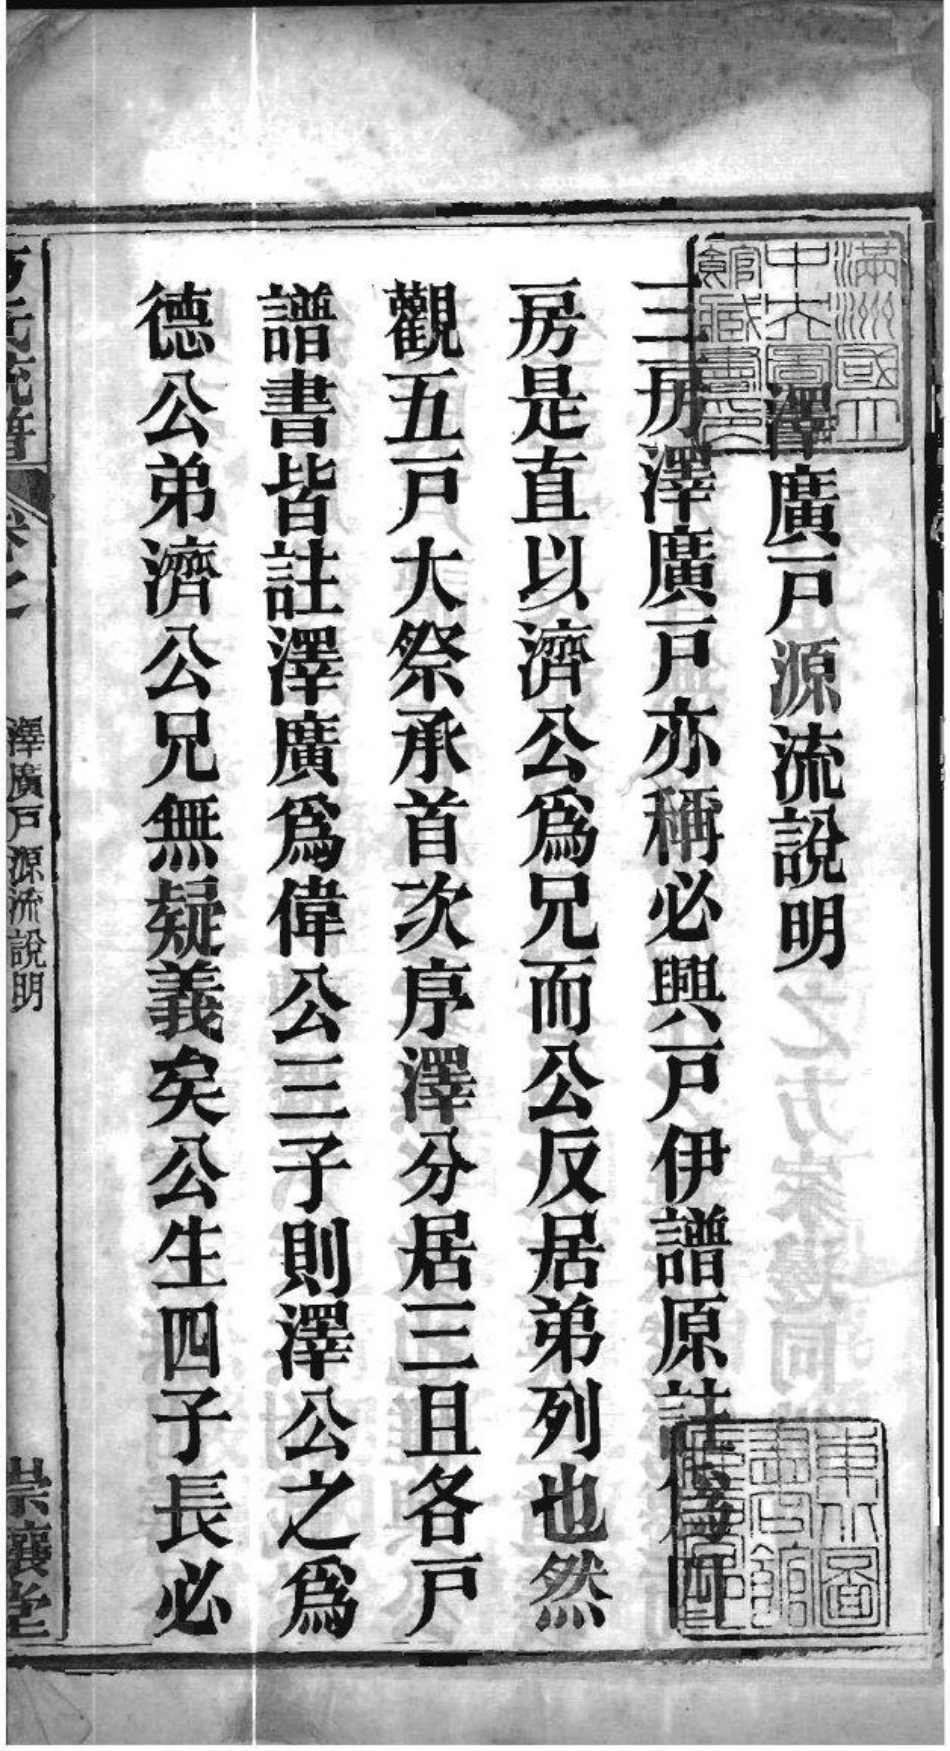 澤廣戸源流說明
三房澤廣戸亦稱必興戸伊譜原註爲四
房是直以濟公爲兄而公反居弟列也然
觀五戸大祭承首次序澤分居三且各戸
譜書皆註澤廣爲偉公三子則澤公之爲
德公弟濟公兄無疑義矣公生四子長必
氏統譜 卷之
澤廣戸源流說明
崇讓堂
滿洲國立
中央圖書
館藏書印
東北圖
書館